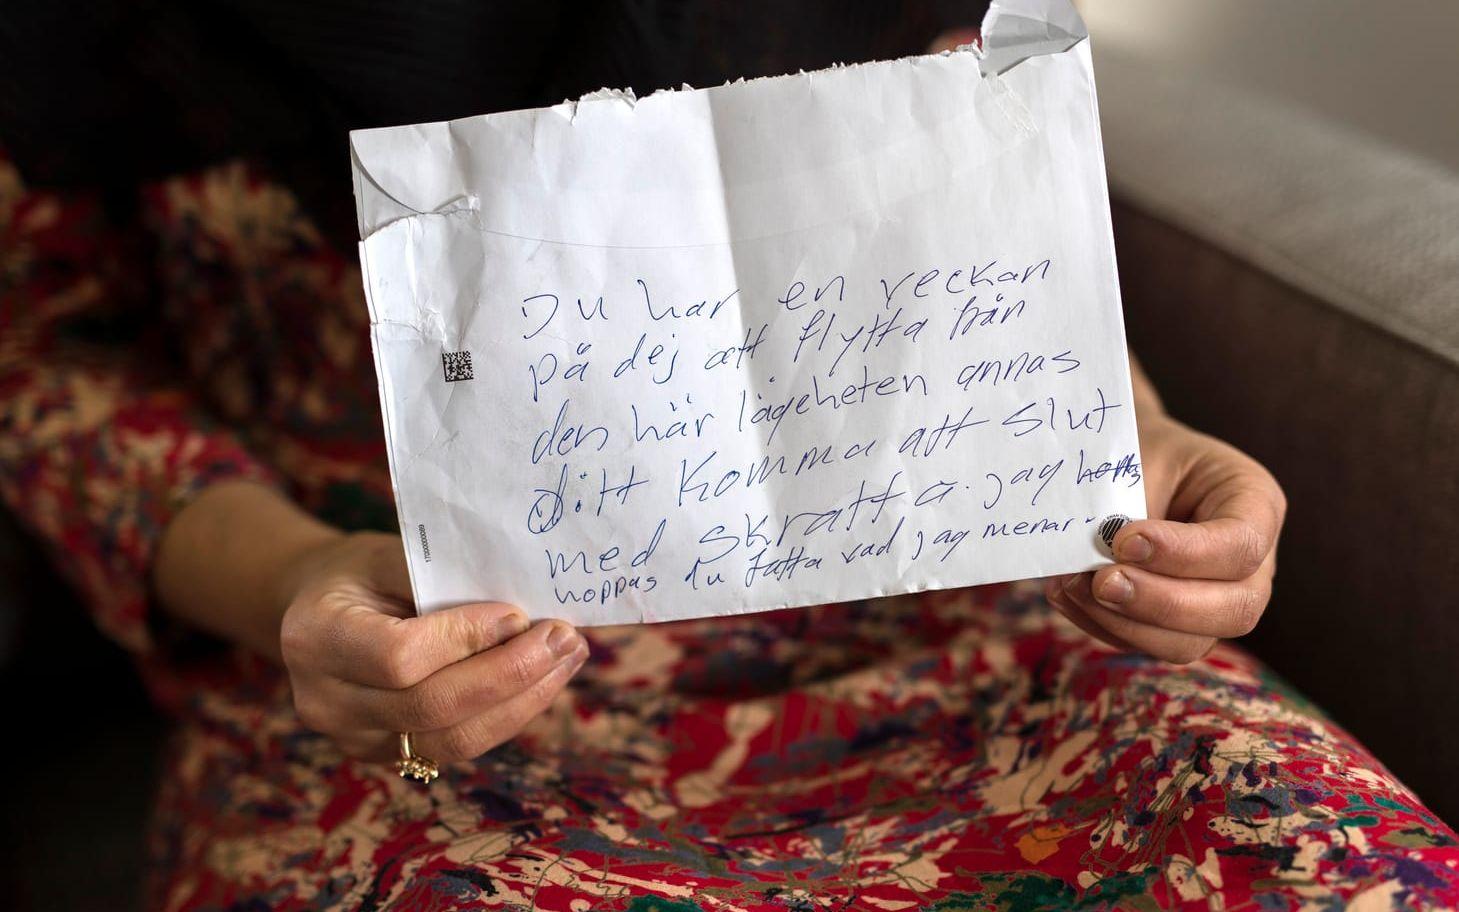 Du har en veckan
på dej att flytta från
den här lägeheten annas
ditt komma att slut
med skratta. jag
hoppas du fatta vad jag menar